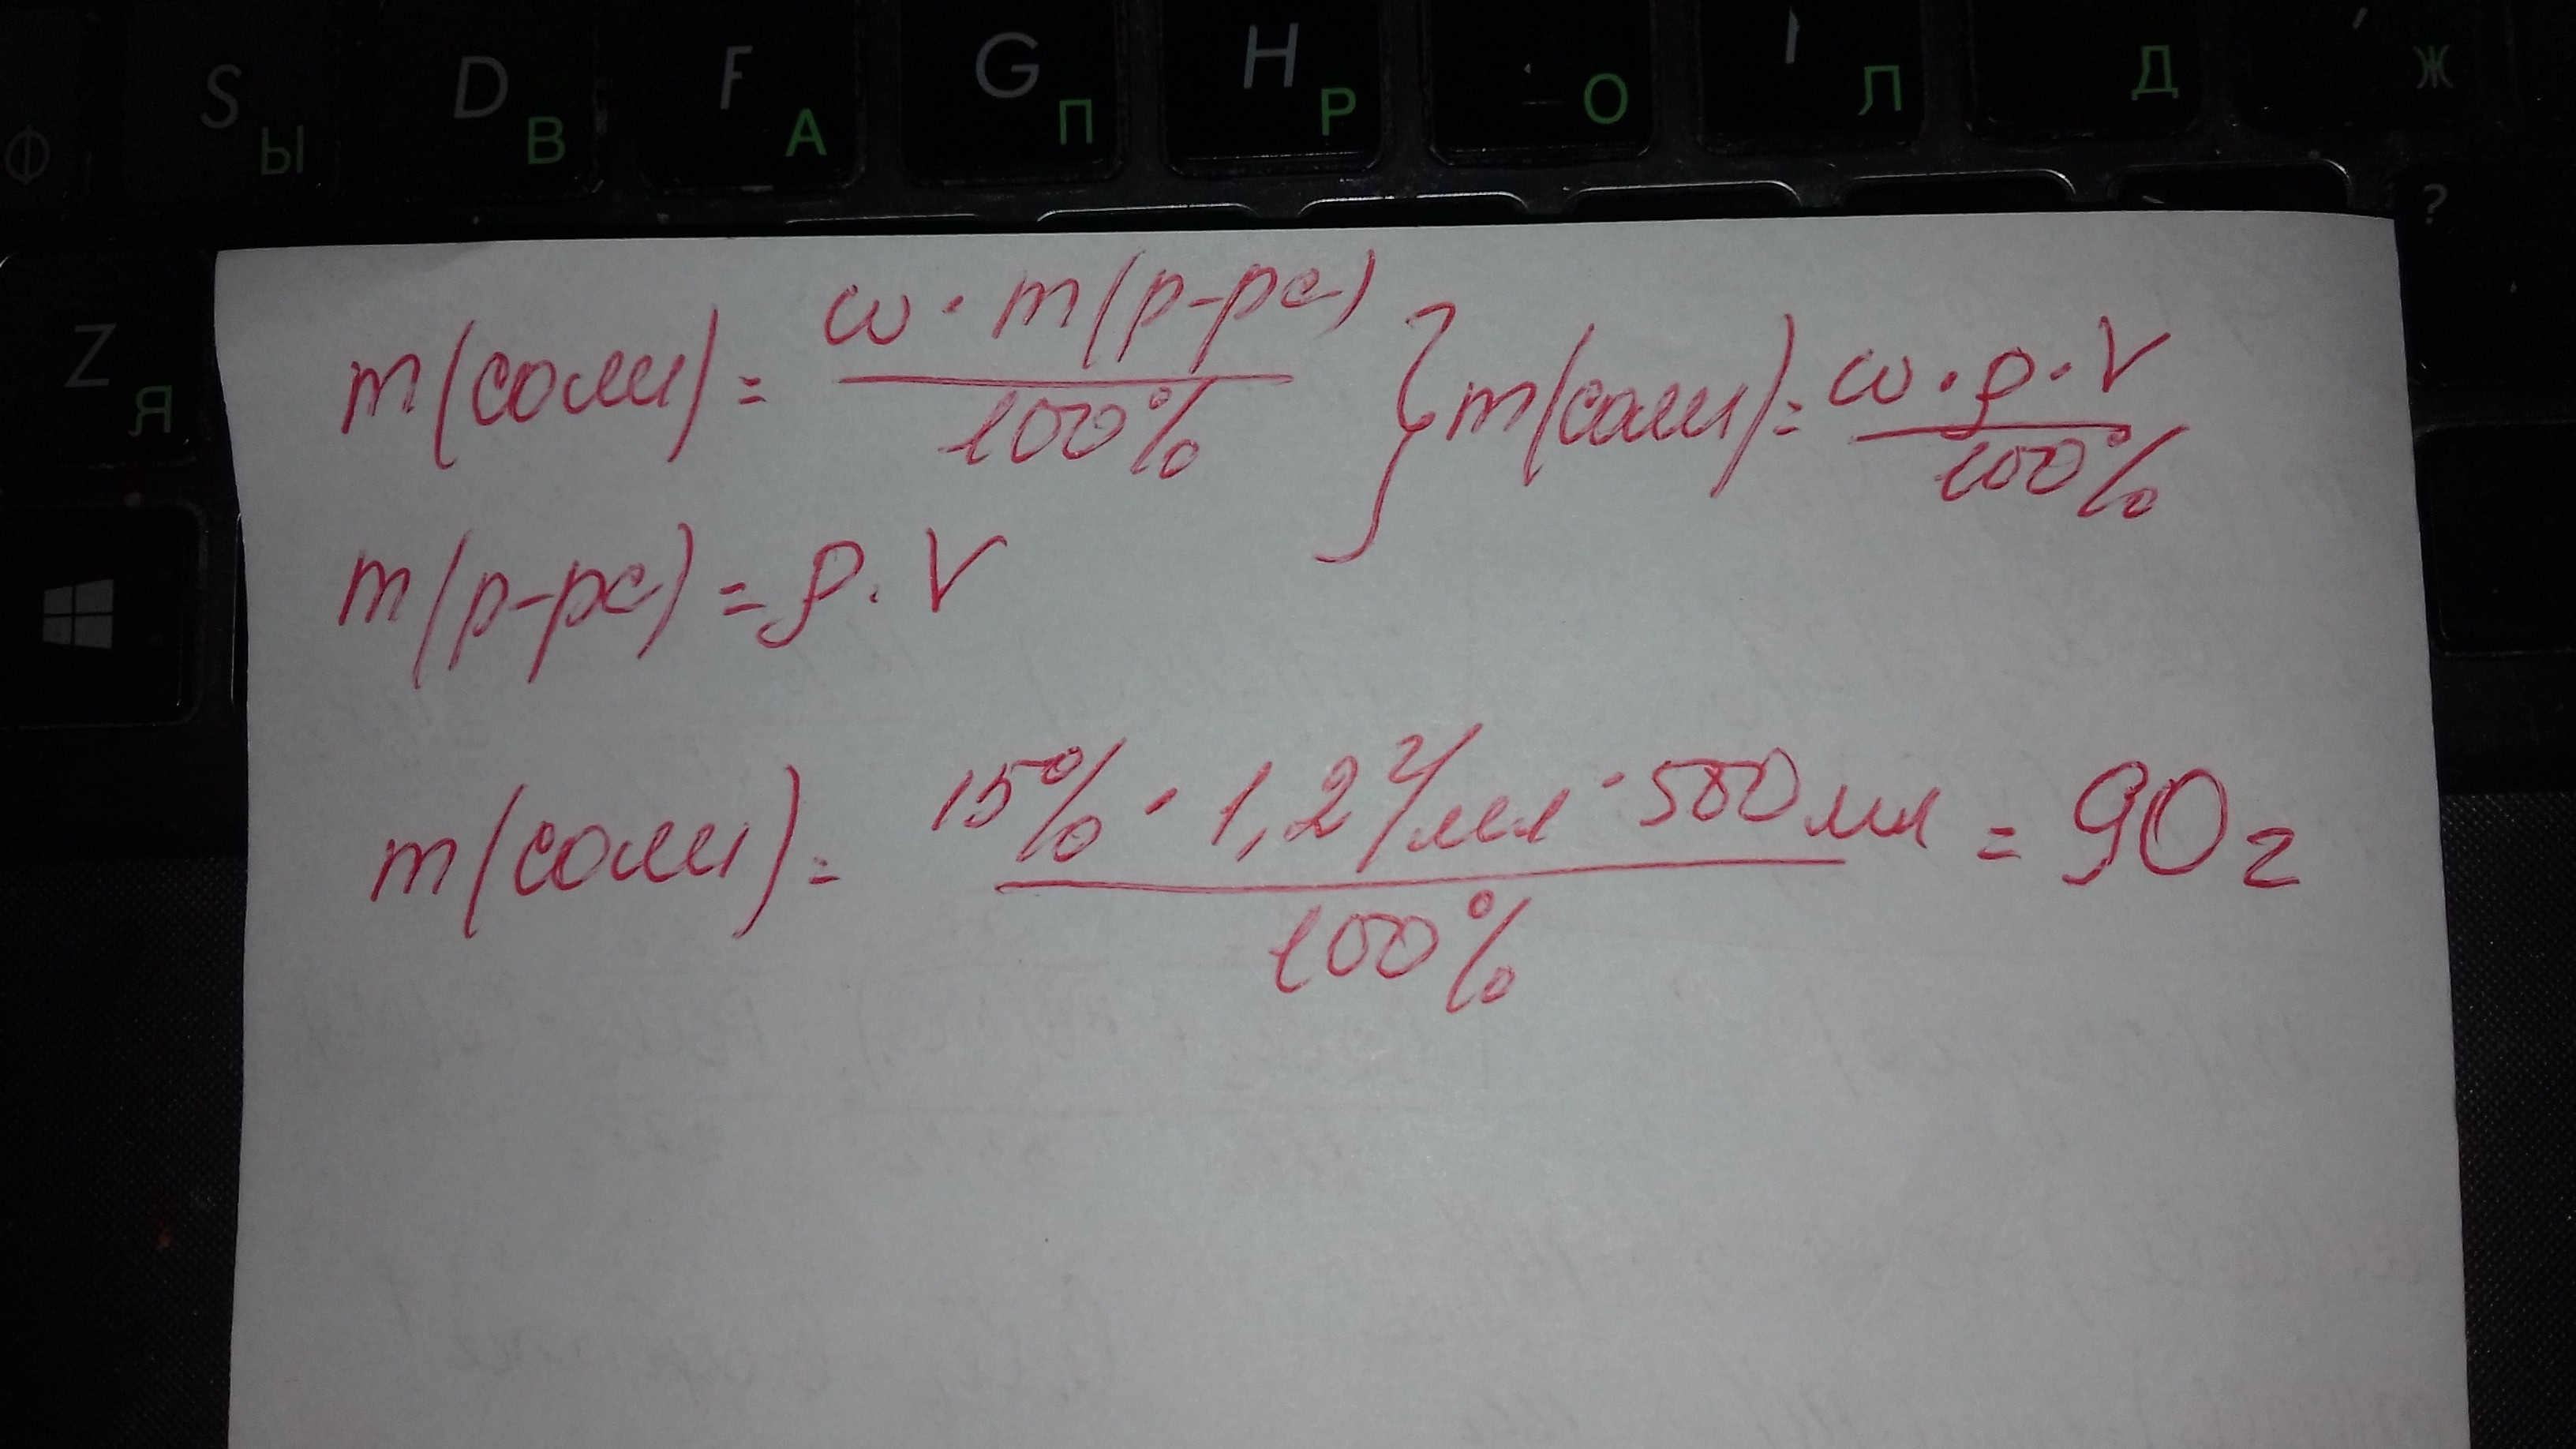 S Ы D В F А G П H Р О Л Д Ж
Ф
?
Z Я
m(соли) = ω · m(р-ра) / 100% } m(соли) = ω · ρ · V / 100%
m(р-ра) = ρ · V
m(соли) = 15% · 1,2 г/мл · 500 мл / 100% = 90 г